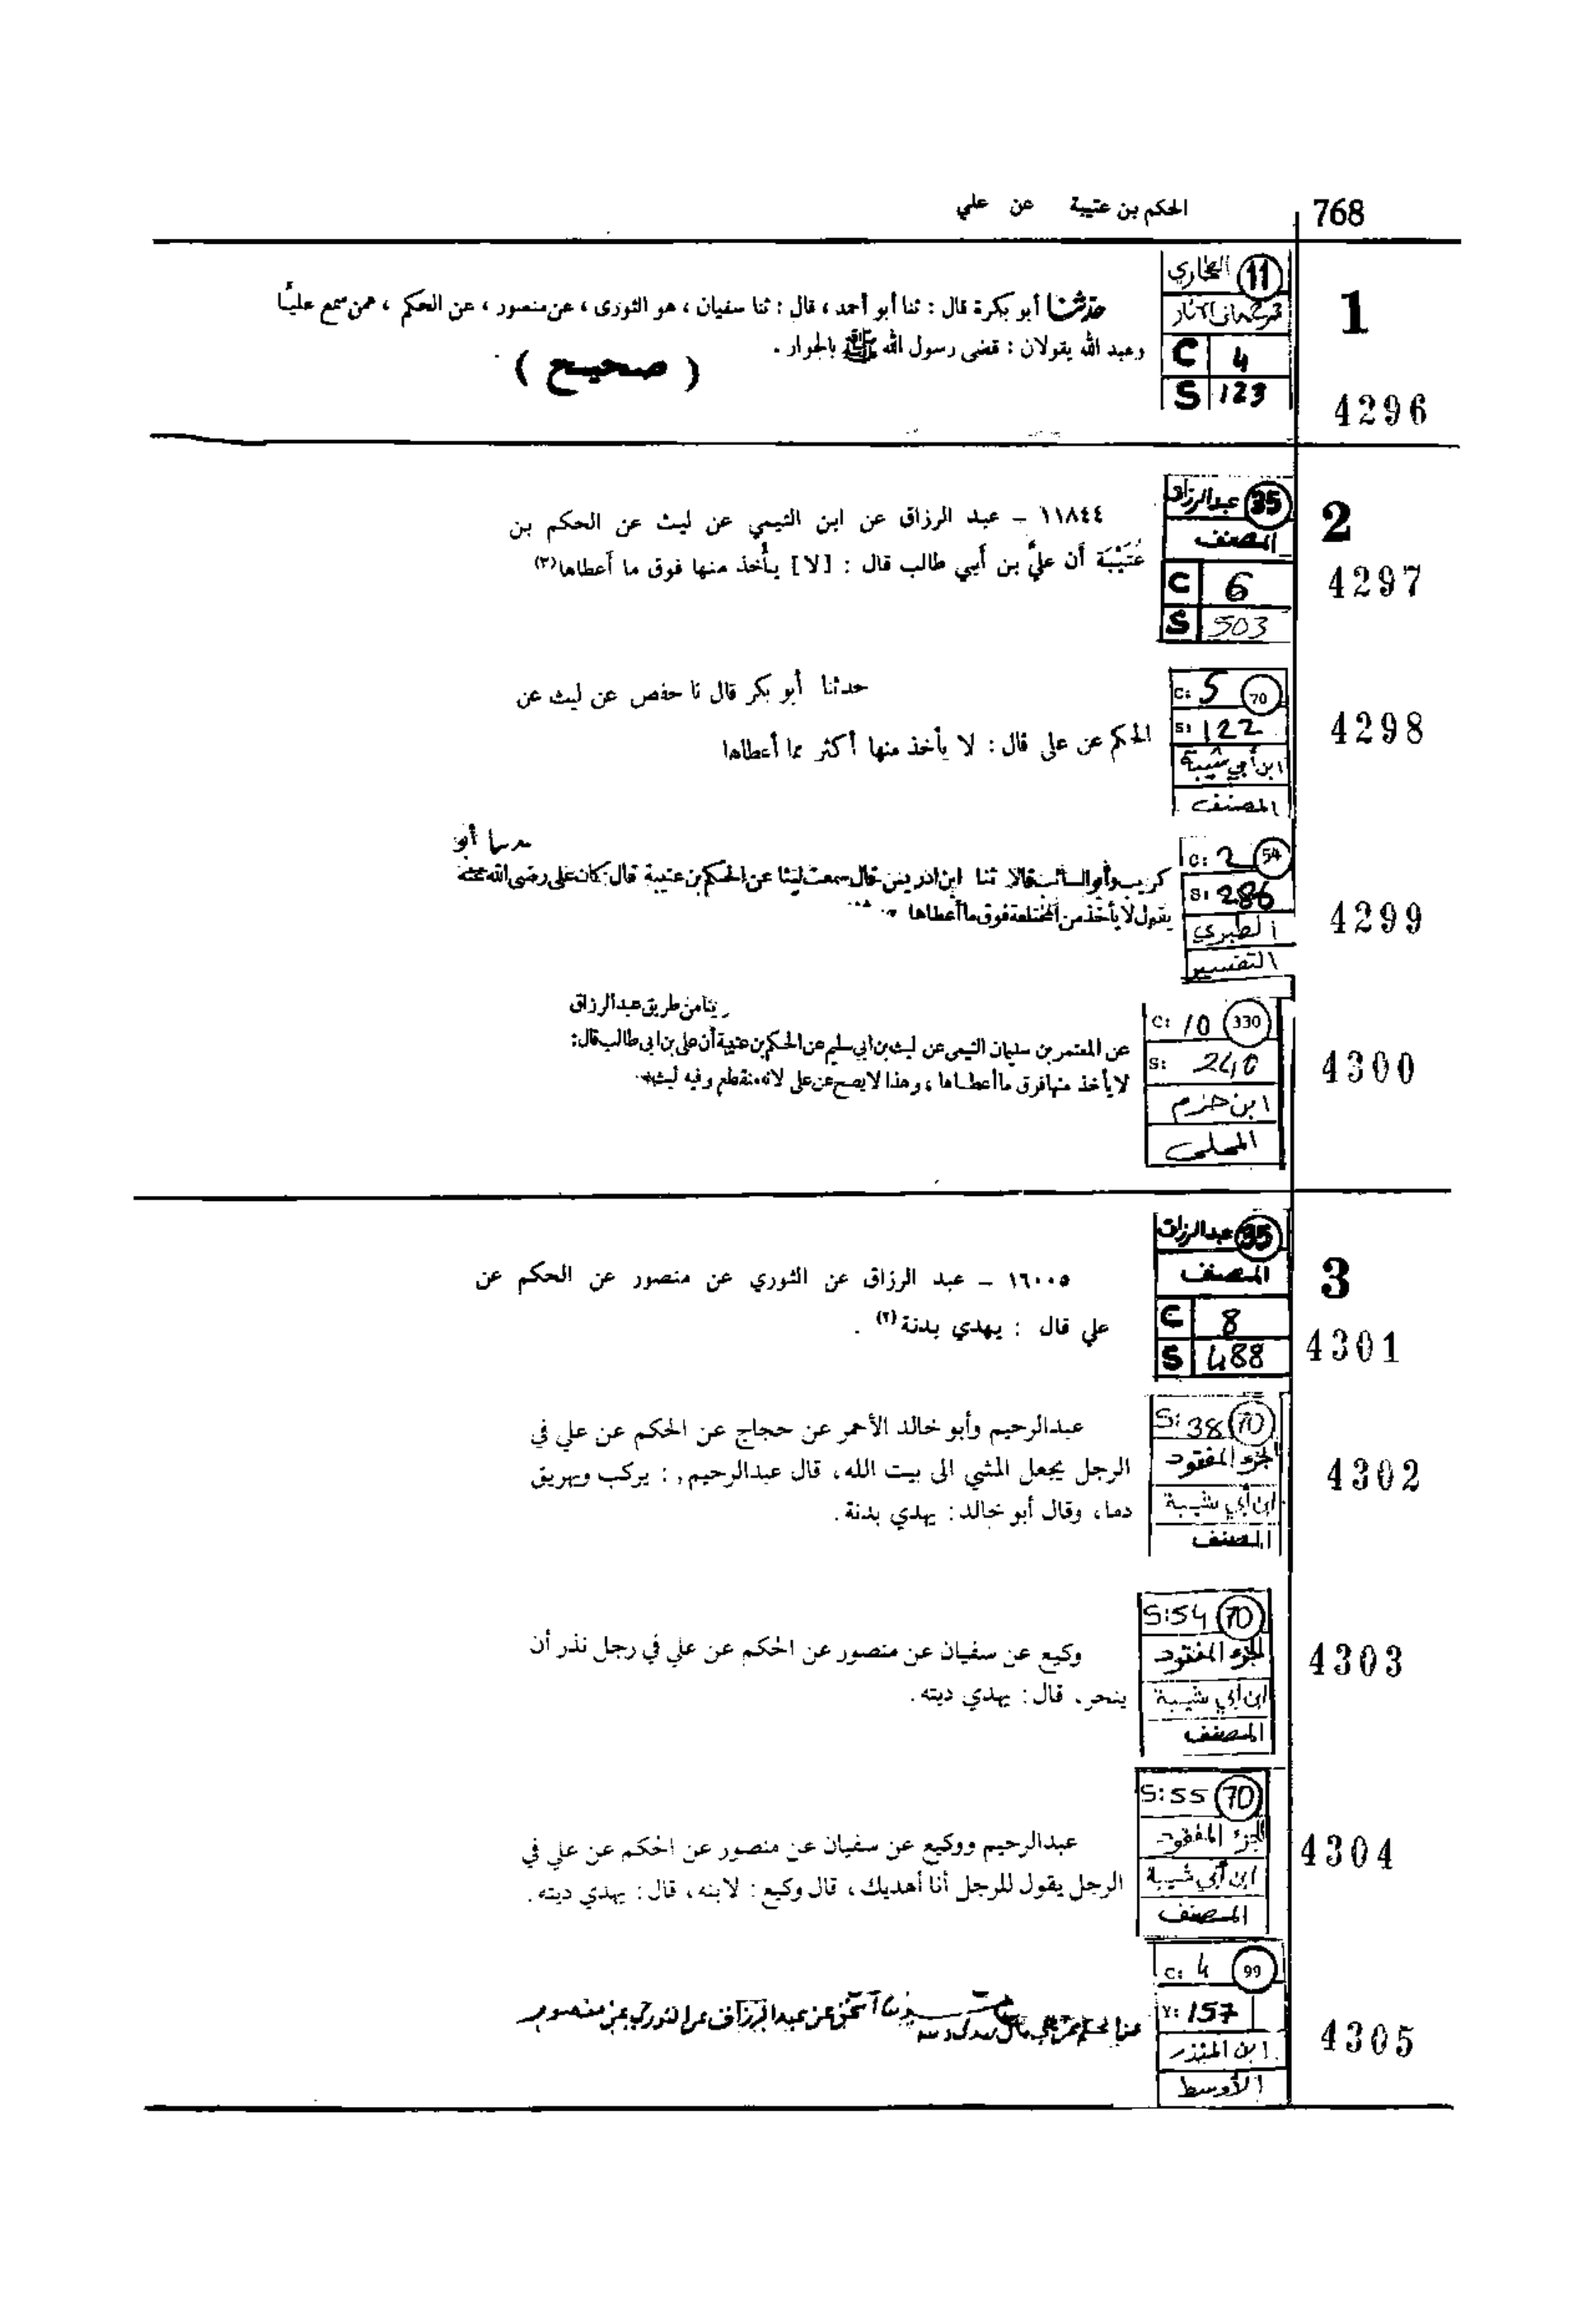 768
الحكم بن عتيبة عن علي
1
11 البخاري
C 4
S 123
4296
حدثنا أبو بكرة قال : ثنا أبو أحمد ، قال : ثنا سفيان ، هو الثورى ، عن منصور ، عن الحكم ، عمن سمع عليًّا
وعبد الله يقولان : قضى رسول الله ﷺ بالجوار .
( صحيح )
2
35 عبدالرزاق
المصنف
C 6
S 503
4297
١١٨٤٤ – عبد الرزاق عن ابن التيمي عن ليث عن الحكم بن
عُتَيْبَة أن عليَّ بن أبي طالب قال : [لا] يأخذ منها فوق ما أعطاها(٣)
C: 5 70
S: 122
ابن أبي شيبة
المصنف
4298
حدثنا أبو بكر قال نا حفص عن ليث عن
الحكم عن على قال : لا يأخذ منها أكثر مما أعطاها
C: 2 54
S: 286
الطبري
التفسير
4299
أبو
كريب وأبو السائب قالا ثنا ابن ادريس قال سمعت ليثا عن الحكم بن عتيبة قال كان على رضى الله عنه
يقول لا يأخذ من المختلعة فوق ما أعطاها
C: 10 330
S: 240
ابن حزم
المحلى
4300
من طريق عبد الرزاق
عن المعتمر بن سليمان التيمى عن ليث بن ابى سليم عن الحكم بن عتيبة أن على بن ابى طالب قال:
لا يأخذ منها فوق ما أعطاها ، وهذا لا يصح عن على لانه منقطع وفيه ليث
3
35 عبدالرزاق
المصنف
C 8
S 488
4301
١٦٠٠٥ – عبد الرزاق عن الثوري عن منصور عن الحكم عن
علي قال : يهدي بدنة (٢) .
S: 38 70
الجزء المفقود
ابن أبي شيبة
المصنف
4302
عبدالرحيم وأبو خالد الأحمر عن حجاج عن الحكم عن علي في
الرجل يجعل المشي الى بيت الله، قال عبدالرحيم,: يركب ويهريق
دما، وقال أبو خالد: يهدي بدنة.
S:54 70
الجزء المفقود
ابن أبي شيبة
المصنف
4303
وكيع عن سفيان عن منصور عن الحكم عن علي في رجل نذر أن
ينحر، قال: يهدي ديته.
S:55 70
الجزء المفقود
ابن أبي شيبة
المصنف
4304
عبدالرحيم ووكيع عن سفيان عن منصور عن الحكم عن علي في
الرجل يقول للرجل أنا أهديك، قال وكيع: لابنه، قال: يهدي ديته.
C: 4 99
Y: 157
ابن المنذر
الأوسط
4305
عن عبد الرزاق عن الثوري عن منصور
عن الحكم عن علي قال